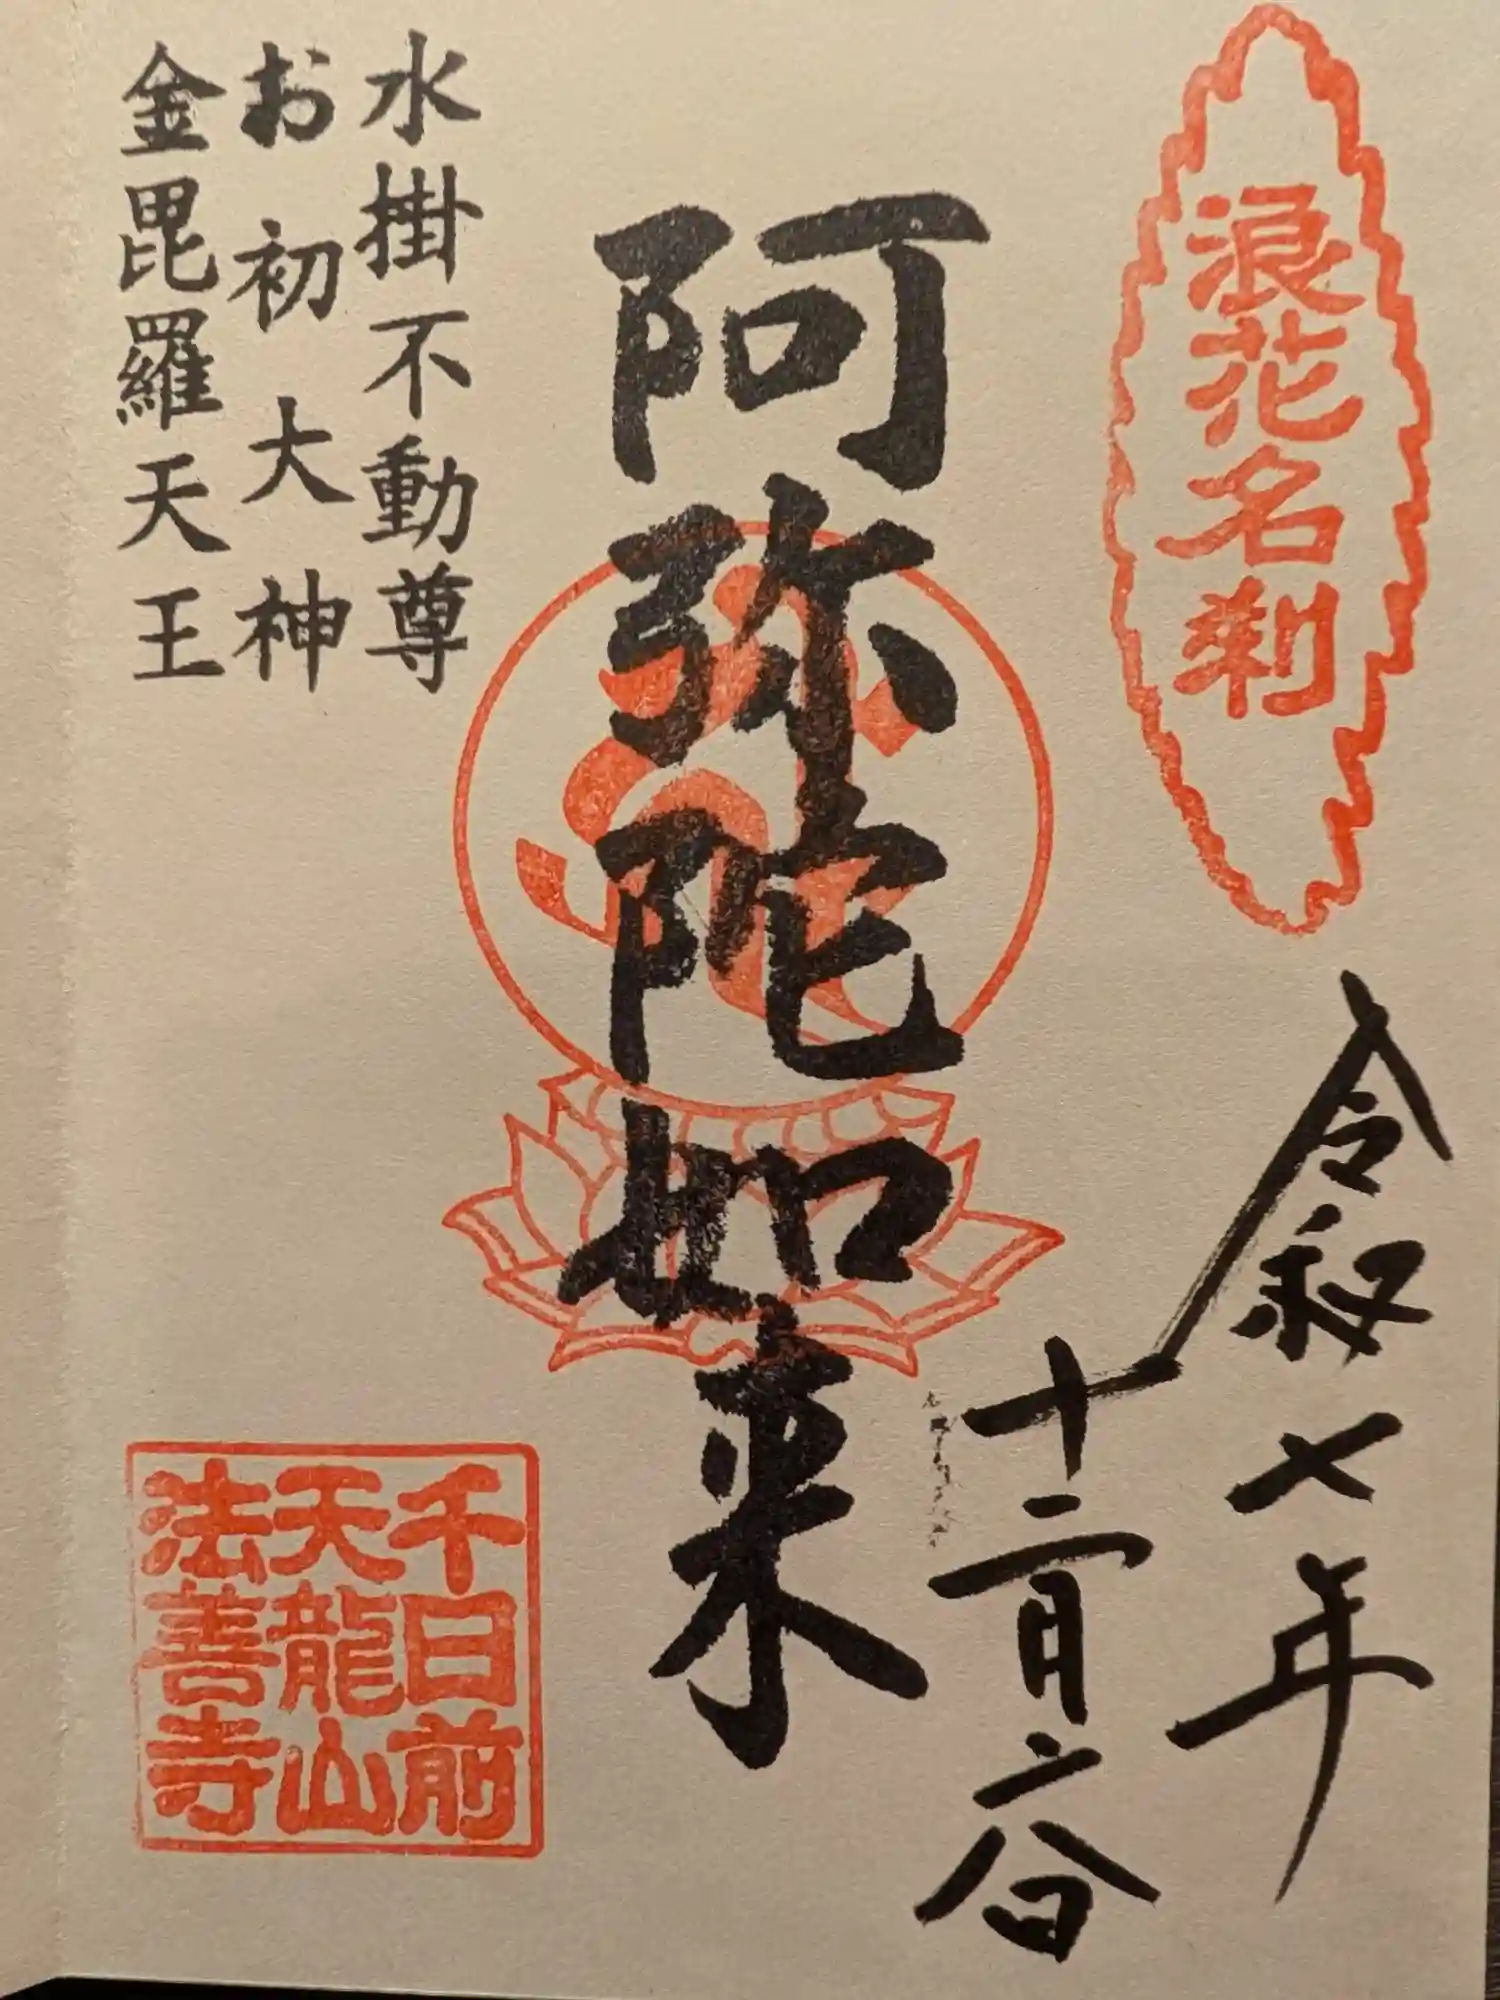 浪花名刹
令和七年
十二月六日
阿弥陀如来
水掛不動尊
お初大神
金毘羅天王
千日前
天龍山
法善寺